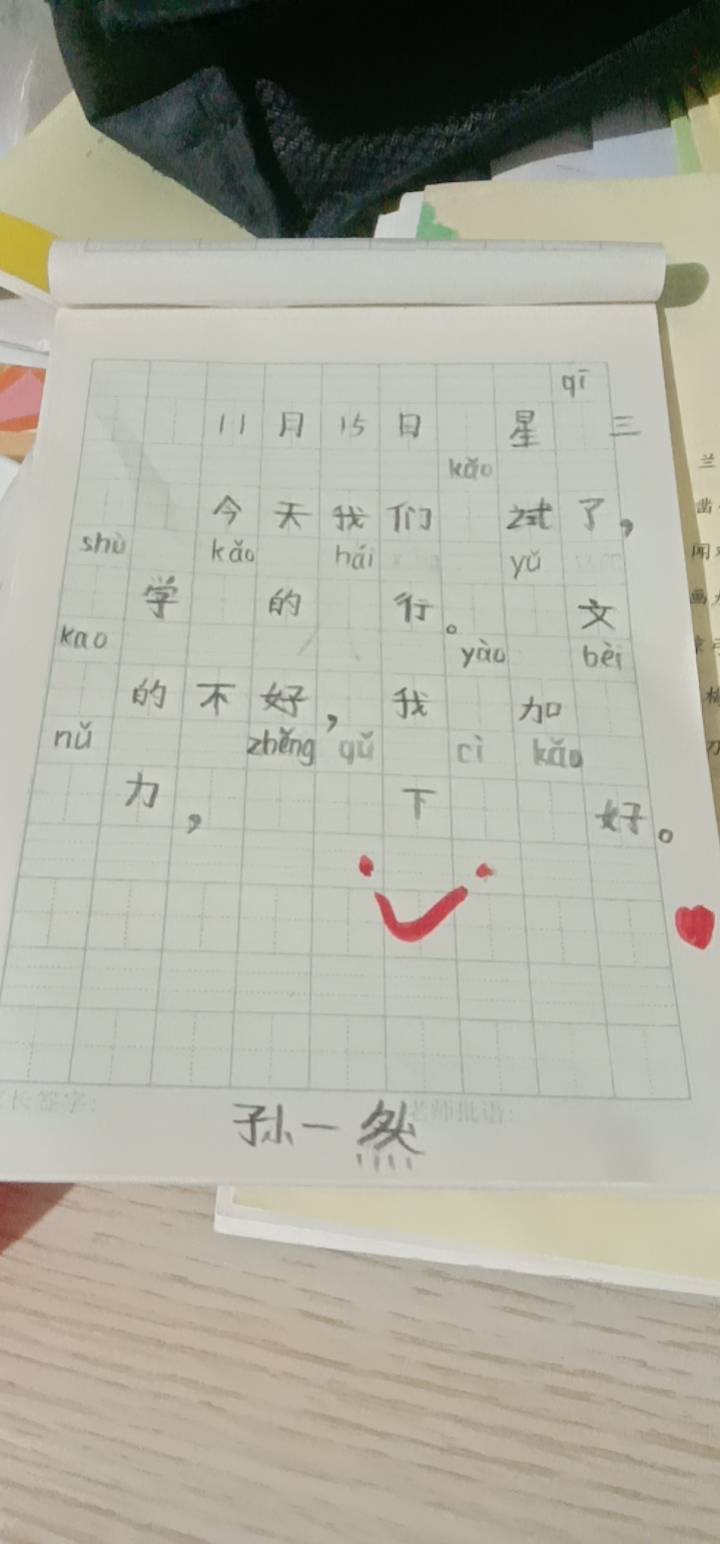 qī
11月15日 星 三
kǎo
今天我们 试了，
shù kǎo hái yǔ
学 的 行。 文
kao yào bèi
的不好，我 加
nǔ zhěng qǔ cì kǎo
力， 下 好。
孙一然
老师批语：